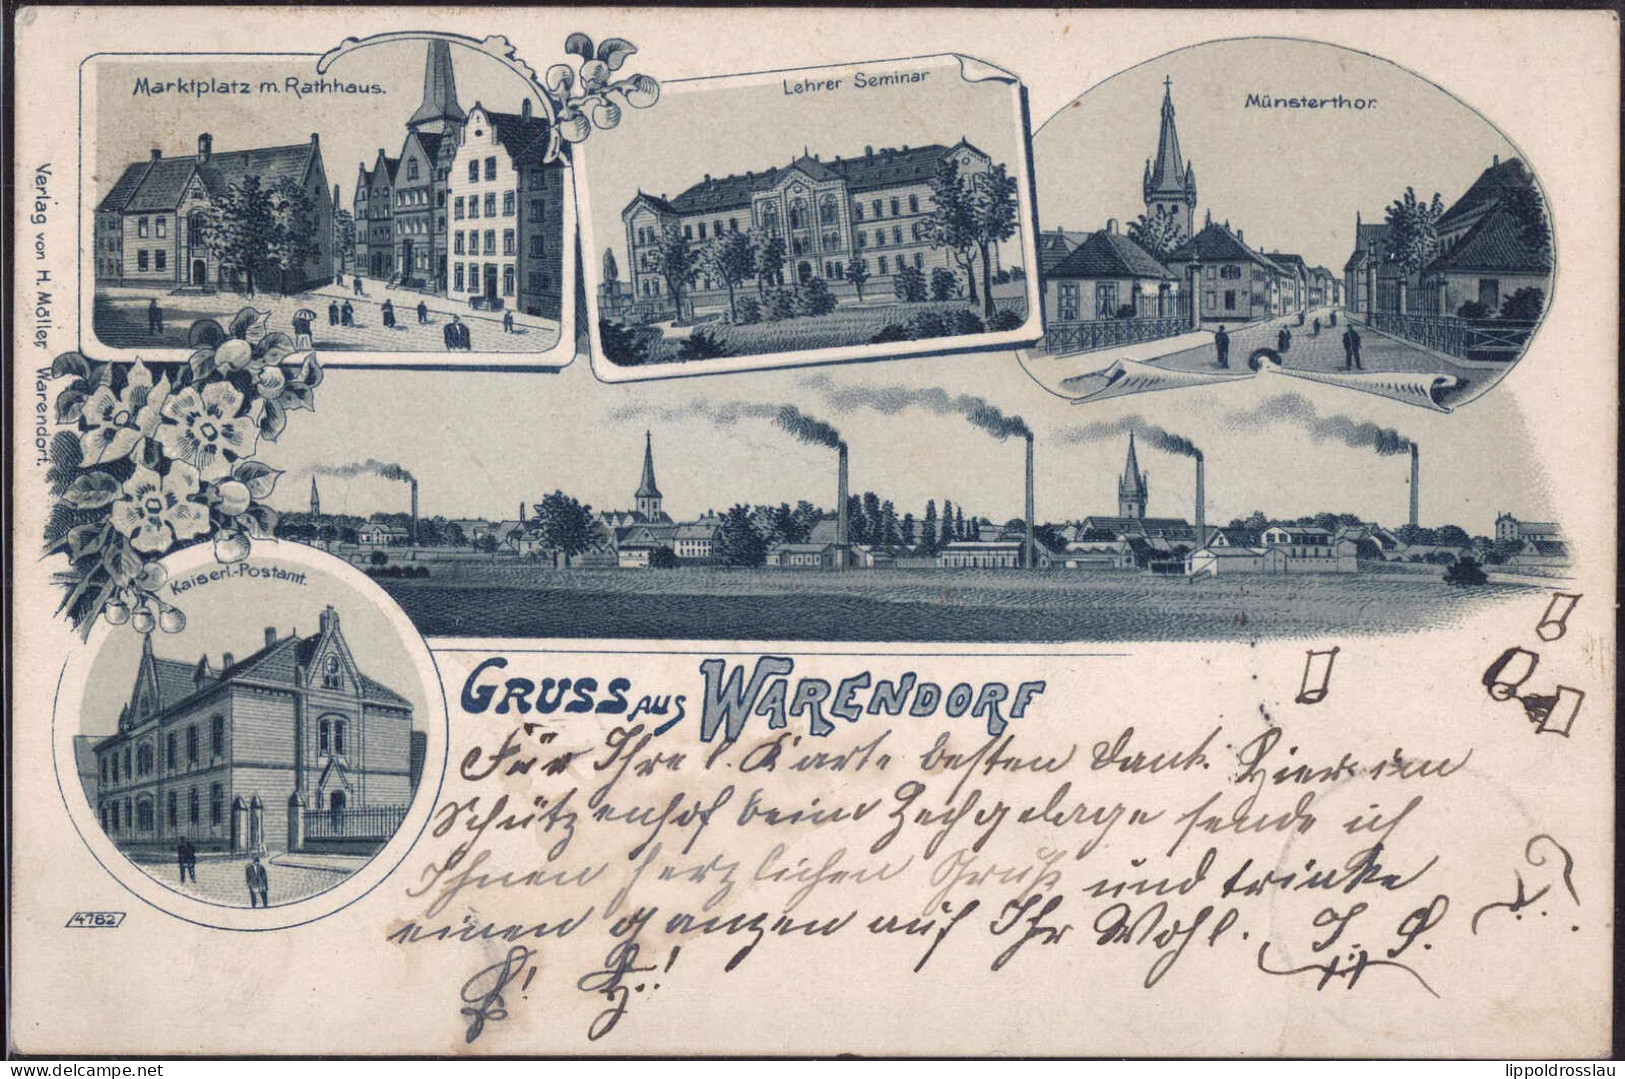 Marktplatz m. Rathhaus.
Lehrer Seminar
Münsterthor.
Verlag von H. Möller, Warendorf.
Kaiserl.-Postamt.
4782
GRUSS AUS WARENDORF
Für Ihre l. Karte besten Dank. Hier im
Schützenhof beim Zechgelage sende ich
Ihnen herzlichen Gruß und trinke
einen ganzen auf Ihr Wohl.
lippoldrosslau